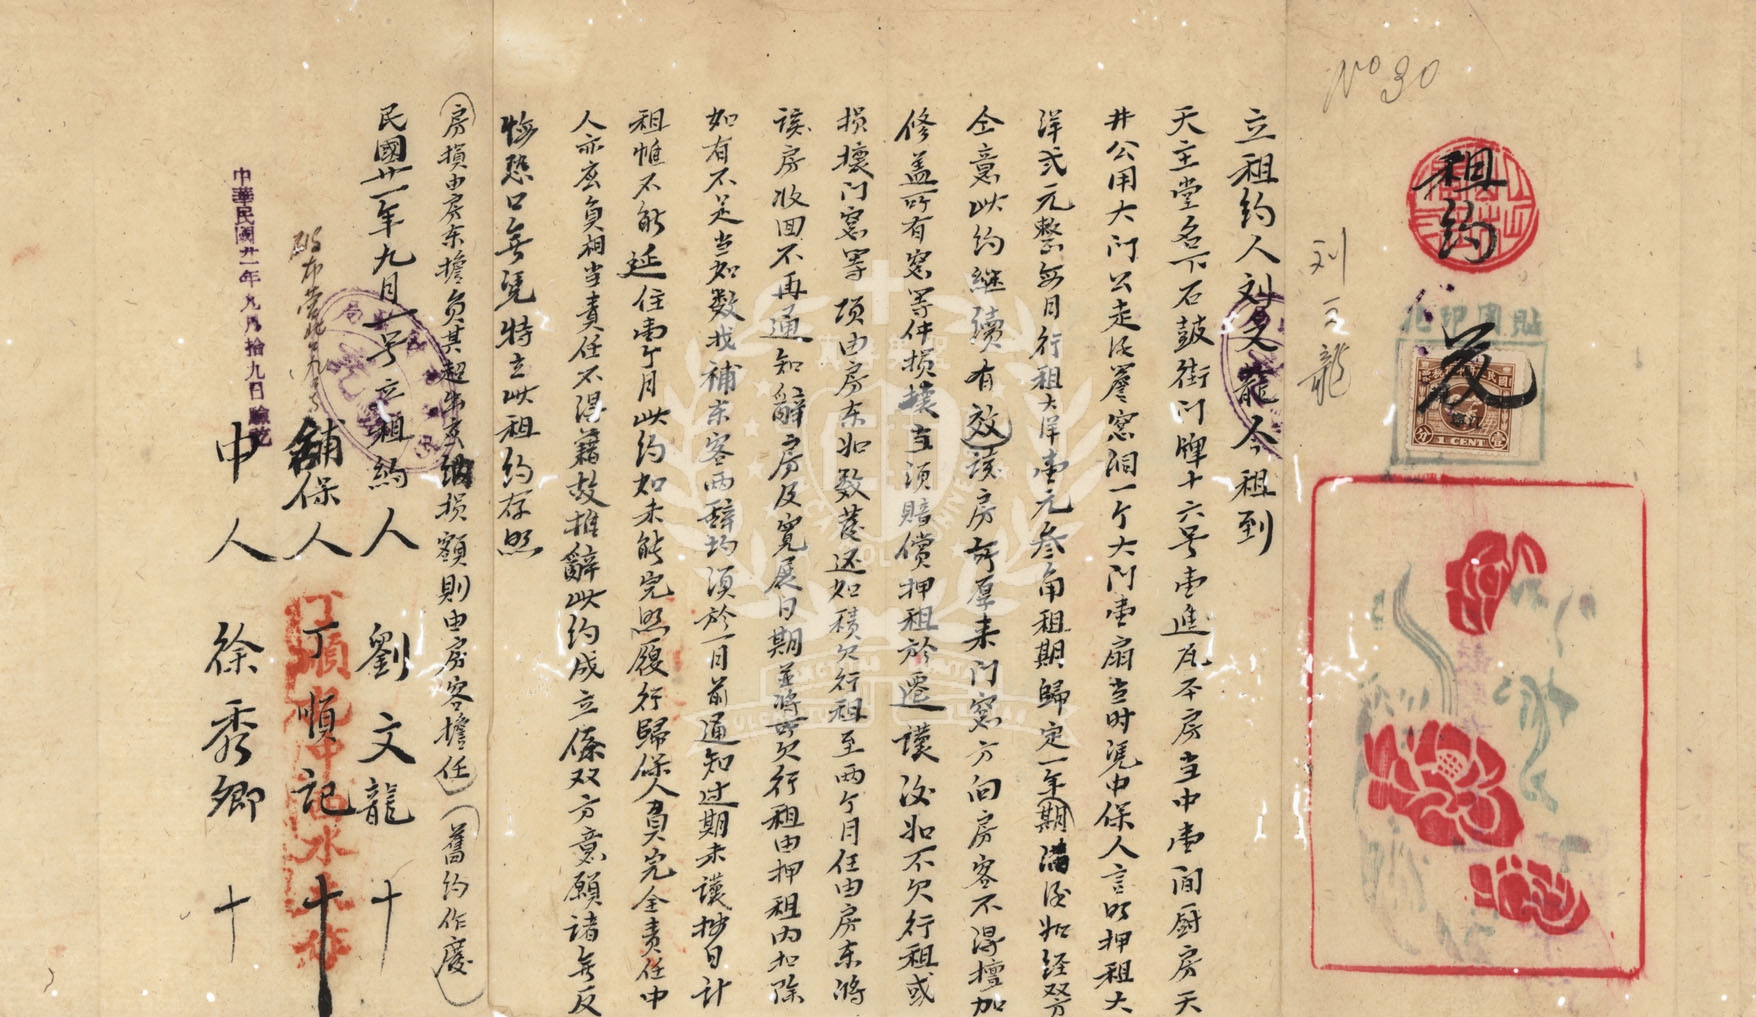 No 30
租約
貼國印花
1 CENT
茂
刘文龍
立租約人刘文龍今租到
天主堂名下石鼓街门牌十六号壹進瓦平房当中壹间厨房天
井公用大门公走後簷窓洞一个大门壹扇当时凴中保人言明押租大
洋弍元整每月行租大洋壹元叁角租期歸定一年期满後如经双方
仝意此约继續有效该房所原来门窓方向房客不得擅加
修盖所有窓等件损壊当须賠償押租於遷讓後如不欠行租或
损壊门窓等项由房东如数发还如積欠行租至两个月任由房东将
该房收回不再通知辭房及寬展日期並將所欠行租由押租内扣除
如有不足当如数找補东客两辞均须於一月前通知过期未讓抄日计
租惟不能延住壹个月此约如未能完照履行歸保人負完全责任中
人亦应負相当责任不得藉故推辭此约成立係双方意願诸無反
悔恐口無凭特立此租约存照
房損由房东擔負其超出
损額則由房客擔任(舊约作廢)
民國廿一年九月一号立租约人 劉文龍 十
舖保人 丁順記 十
中人 徐秀卿 十
中華民國廿一年九月拾九日